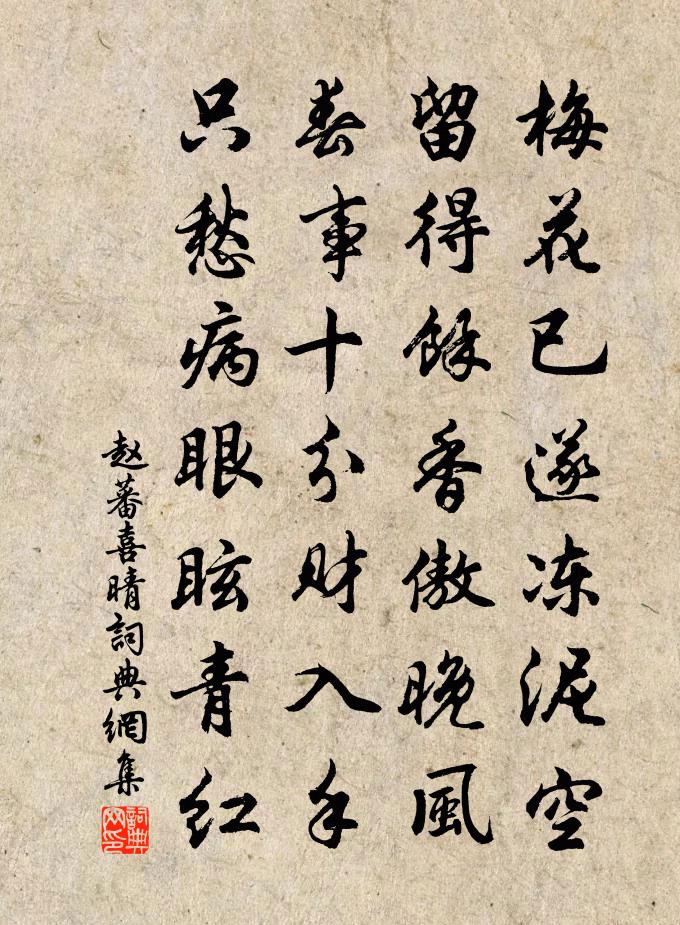 梅花已遂冻泥空
留得餘香傲晚風
春事十分财入手
只愁病眼眩青红
赵蕃喜晴詞典網集
詞典网印